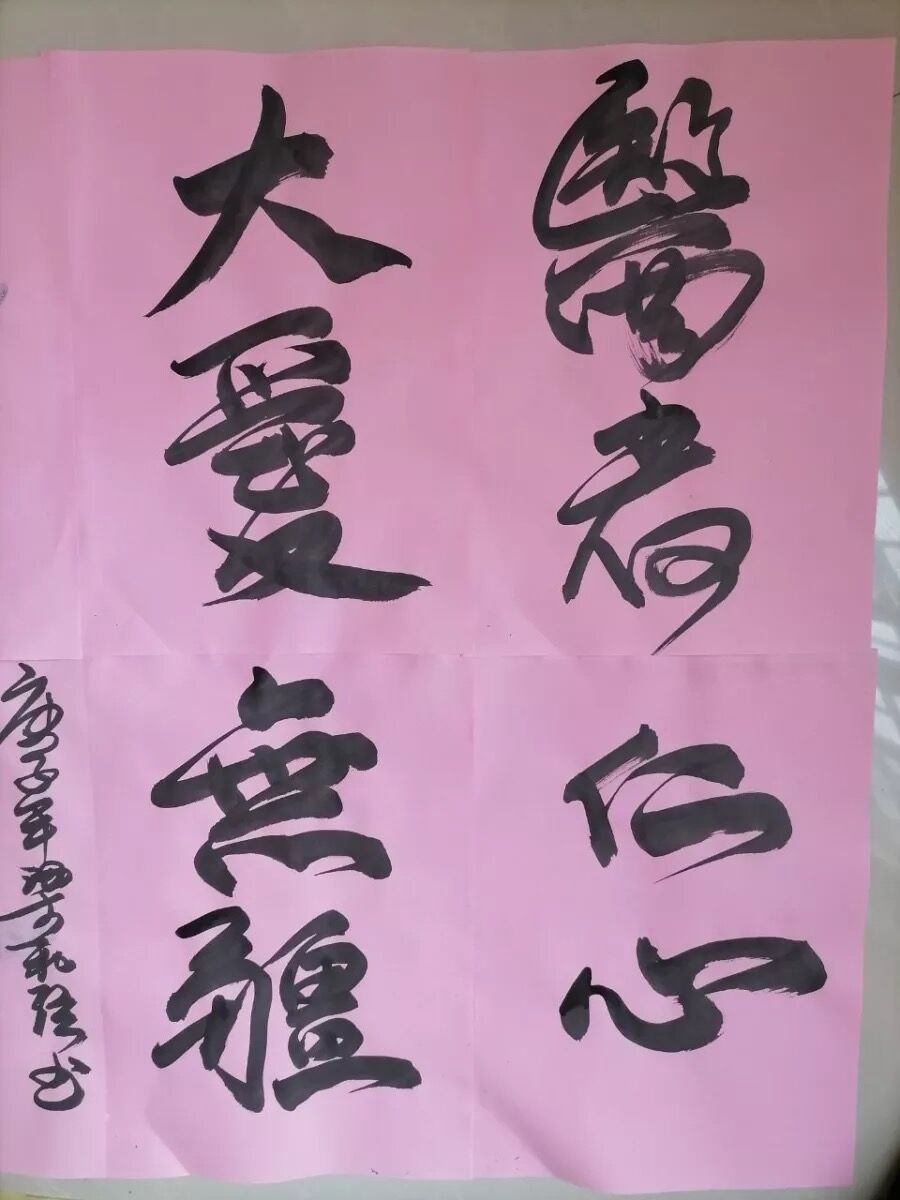 醫者仁心
大愛無疆
庚子年 書